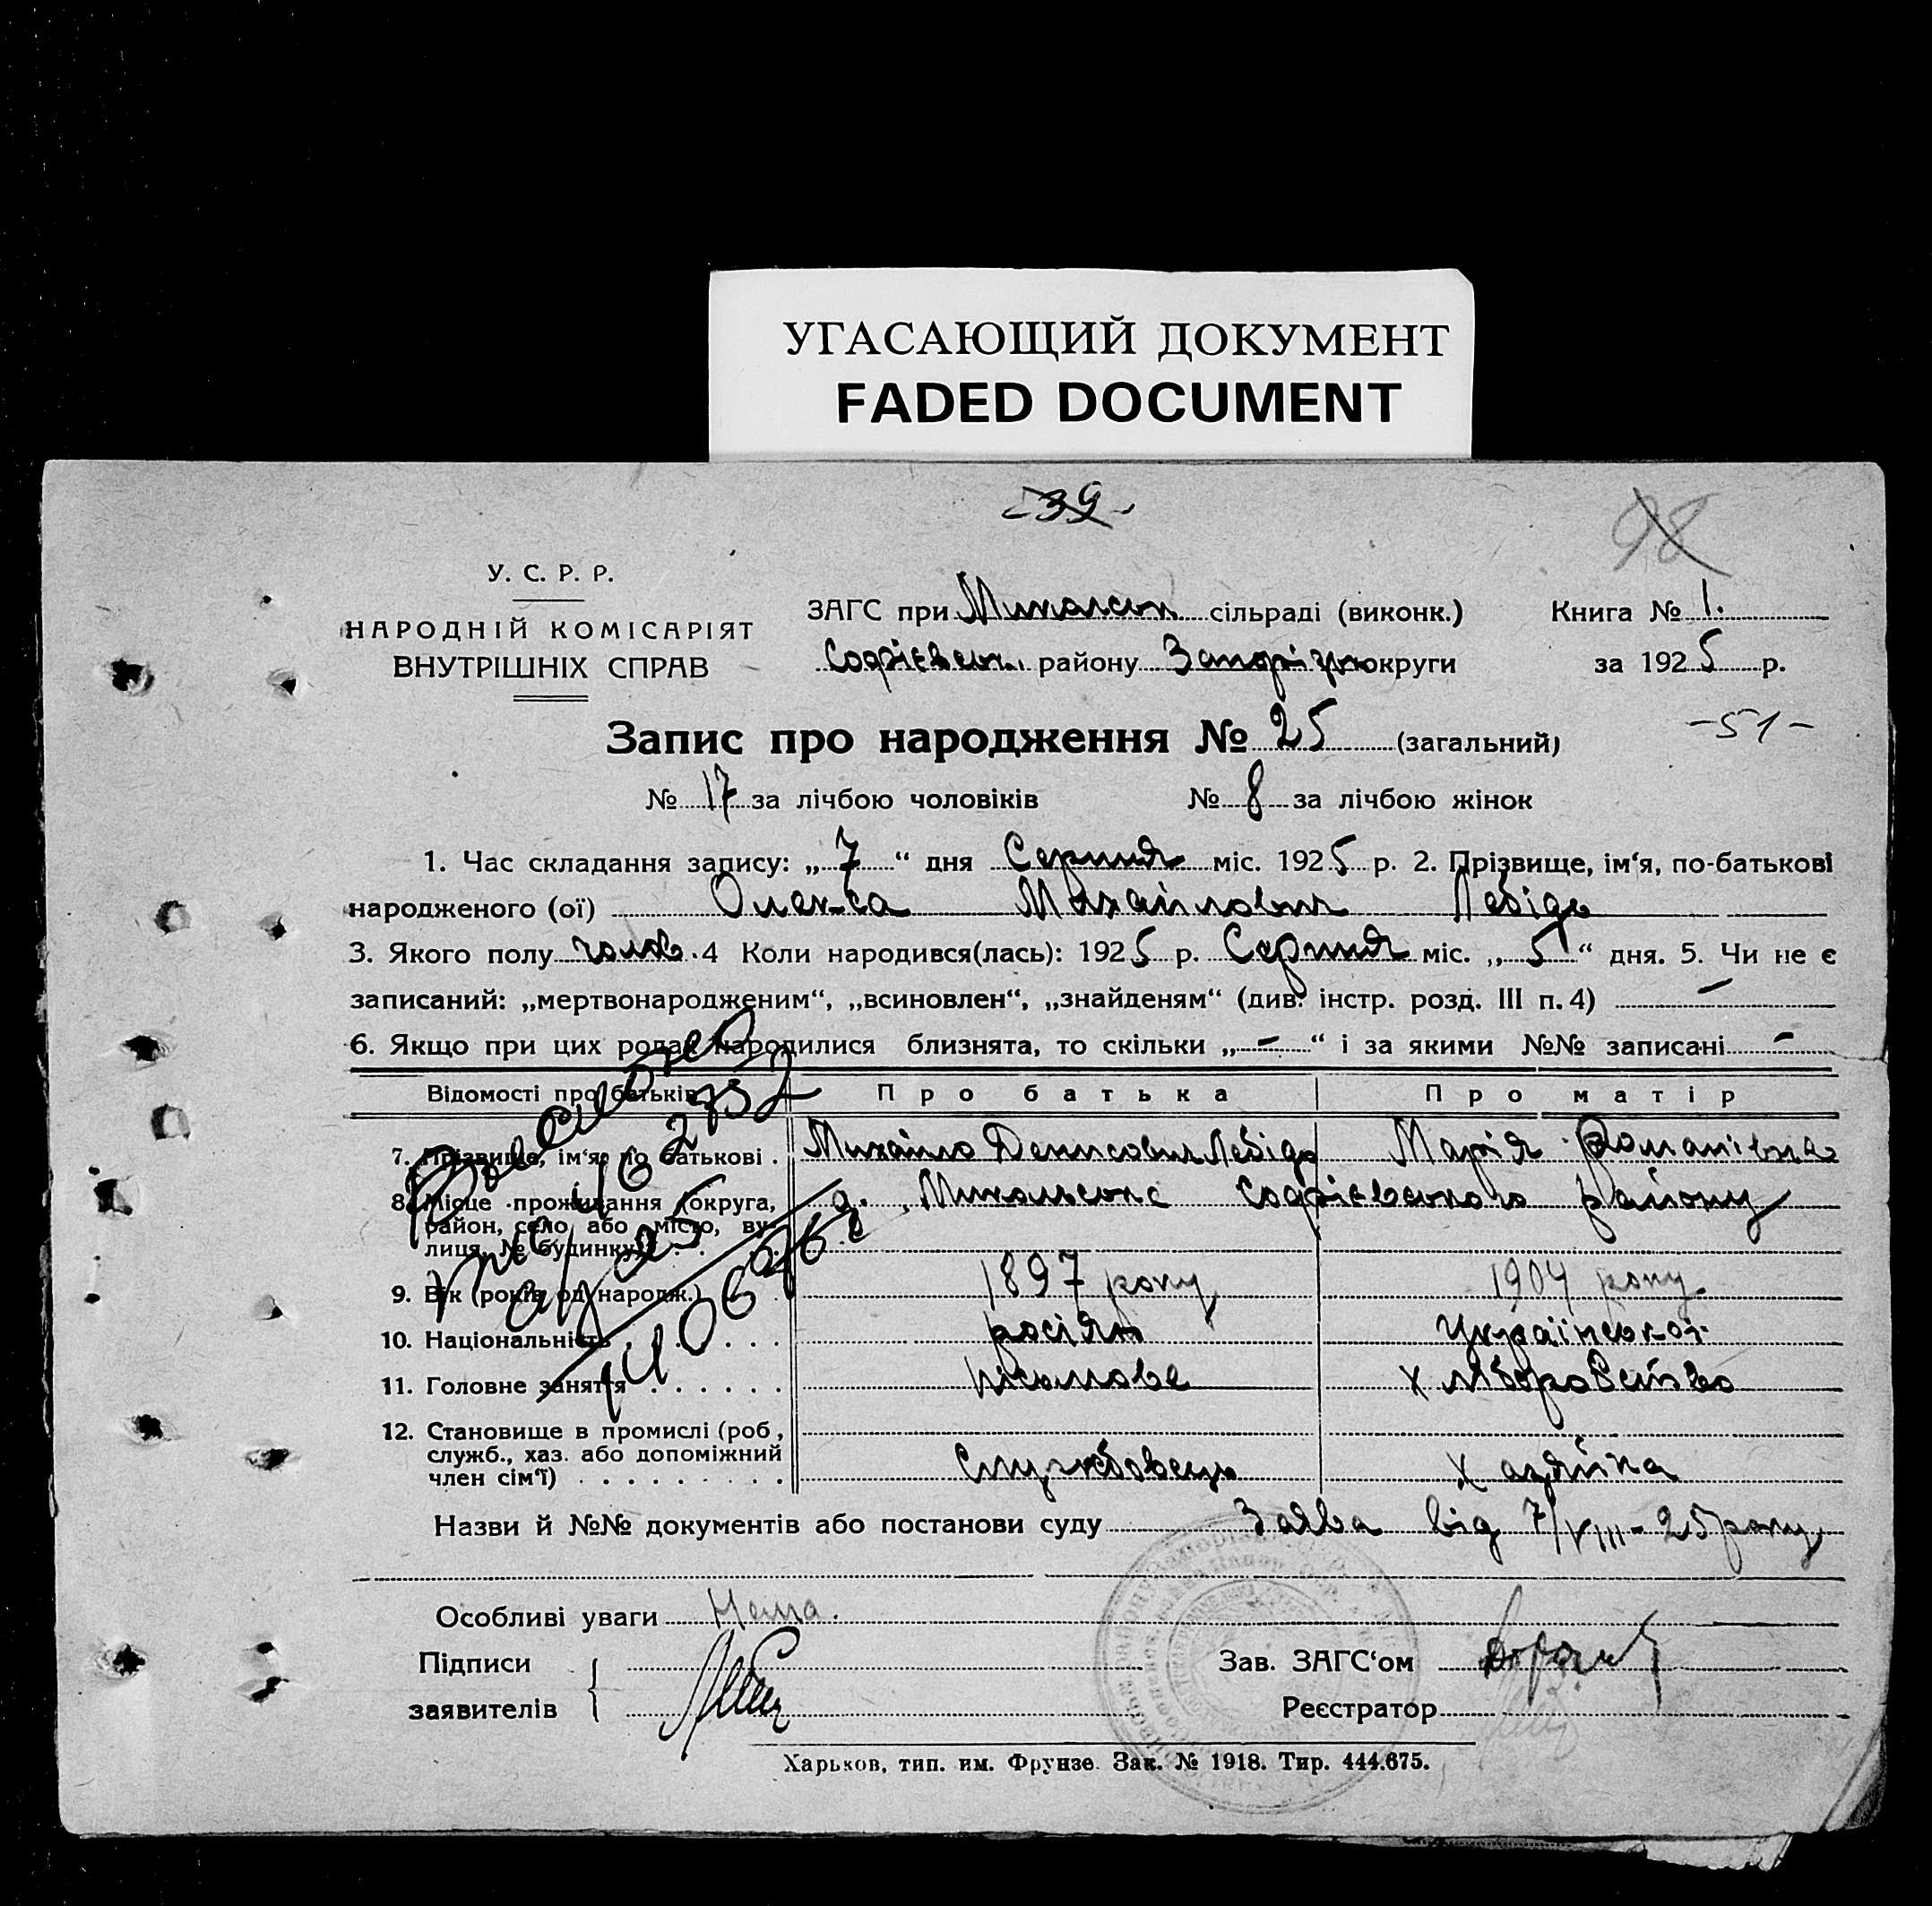 УГАСАЮЩИЙ ДОКУМЕНТ
FADED DOCUMENT
-39-
98
У. С. Р. Р.
НАРОДНІЙ КОМІСАРІЯТ
ВНУТРІШНІХ СПРАВ
ЗАГС при сільраді (виконк.)
Софієвськ. району Запоріз округи
Книга № 1.
за 1925 р.
Запис про народження № 25 (загальний)
-51-
№ 17 за лічбою чоловіків № 8 за лічбою жінок
1. Час складання запису: „7“ дня Серпня міс. 1925 р. 2. Прізвище, ім‘я, по-батькові
народженого (ої) Олекса Михайлович Лебідь
3. Якого полу чолов. 4 Коли народився(лась): 1925 р. Серпня міс. „5“ дня. 5. Чи не є
записаний: „мертвонародженим“, „всиновлен“, „знайденям“ (див. інстр. розд. III п. 4) —
6. Якщо при цих родах народилися близнята, то скільки „-“ і за якими №№ записані -
Відомості про батьків Про батька Про матір
7. Прізвище, ім‘я, по батькові . Михайло Денисович Лебідь Марія Романівна
8. Місце проживання (округа, Софієвського району
район, село або місто, ву-
лиця, № будинку)
9. Вік (років од народж.) 1897 року 1904 року
10. Національність росіян Української
11. Головне заняття письмове хліборобство
12. Становище в промислі (роб.,
служб., хаз. або допоміжний Службовець Хазяйка
член сім‘ї)
Назви й №№ документів або постанови суду Заява від 7/VIII-25 року
Особливі уваги Нема.
Підписи
заявителів
Зав. ЗАГС‘ом
Реєстратор
Харьков, тип. им. Фрунзе. Зак. № 1918. Тир. 444.675.